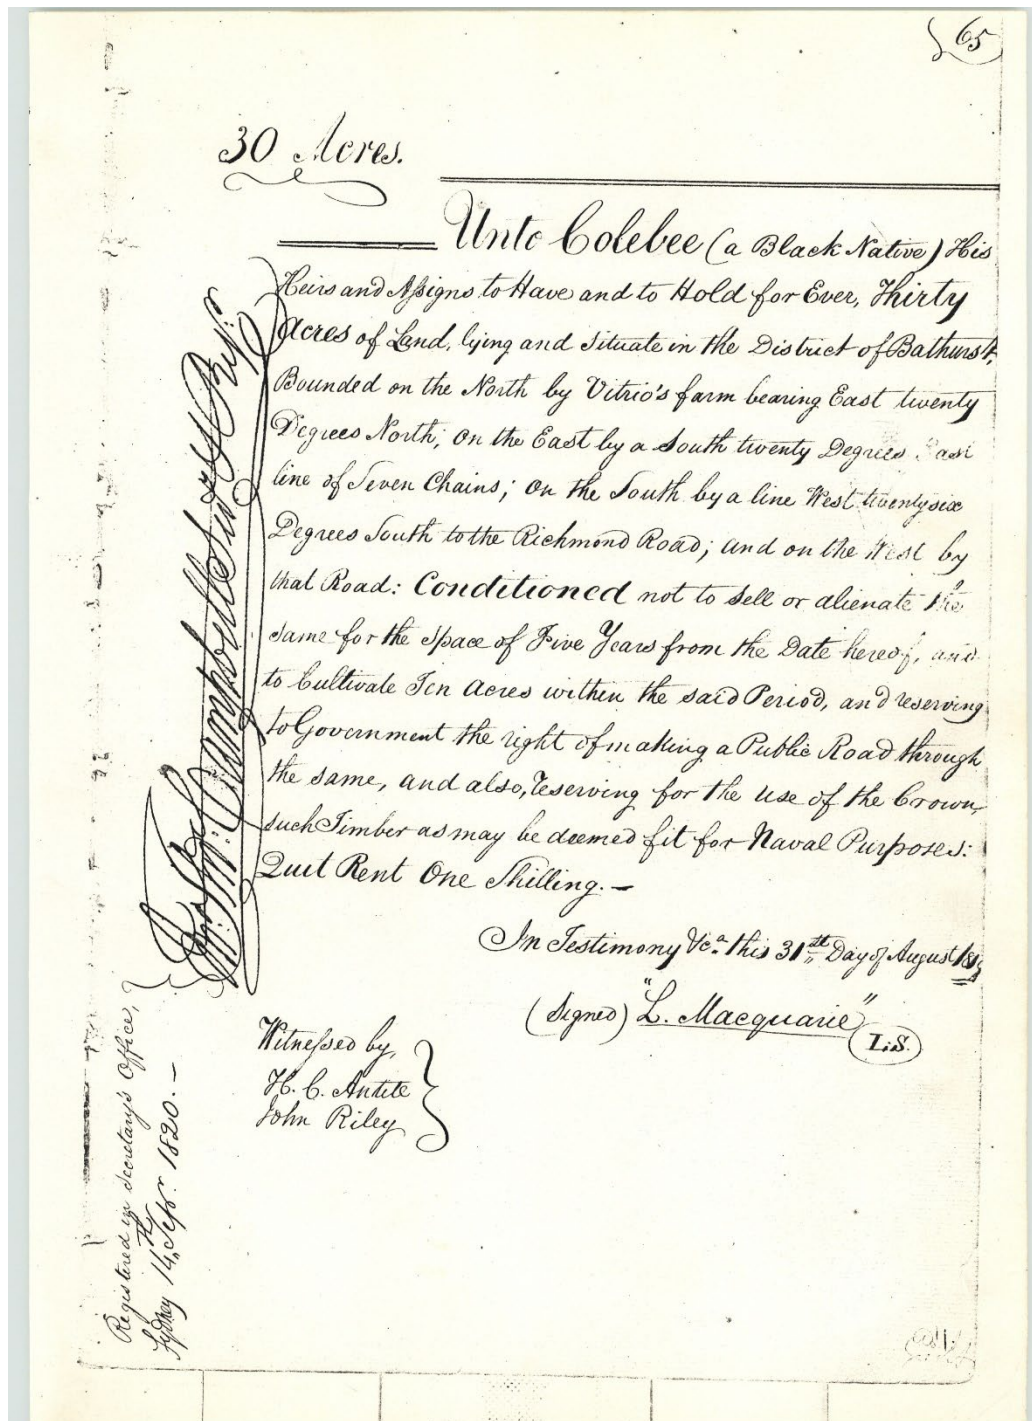 65
30 Acres.
Unto Colebee (a Black Native) His
Heirs and Assigns to Have and to Hold for Ever, Thirty
Acres of Land, lying and Situate in the District of Bathurst,
Bounded on the North by Vitrio's farm bearing East twenty
Degrees North; On the East by a South twenty Degrees East
line of Seven Chains; On the South by a line West twenty six
Degrees South to the Richmond Road; and on the West by
that Road: Conditioned not to Sell or alienate the
Same for the Space of Five Years from the Date hereof, and
to Cultivate Ten Acres within the said Period, and reserving
to Government the right of making a Public Road through
the same, and also, reserving for the Use of the Crown,
such Timber as may be deemed fit for Naval Purposes:
Quit Rent One Shilling. —
In Testimony &ca. this 31st Day of August
(Signed) "L. Macquarie"
L.S.
Witnessed by,
H. C. Antill
John Riley
Registered in Secretary's Office,
Sydney 14th Septr. 1820. —
Campbell Secy & Regr.